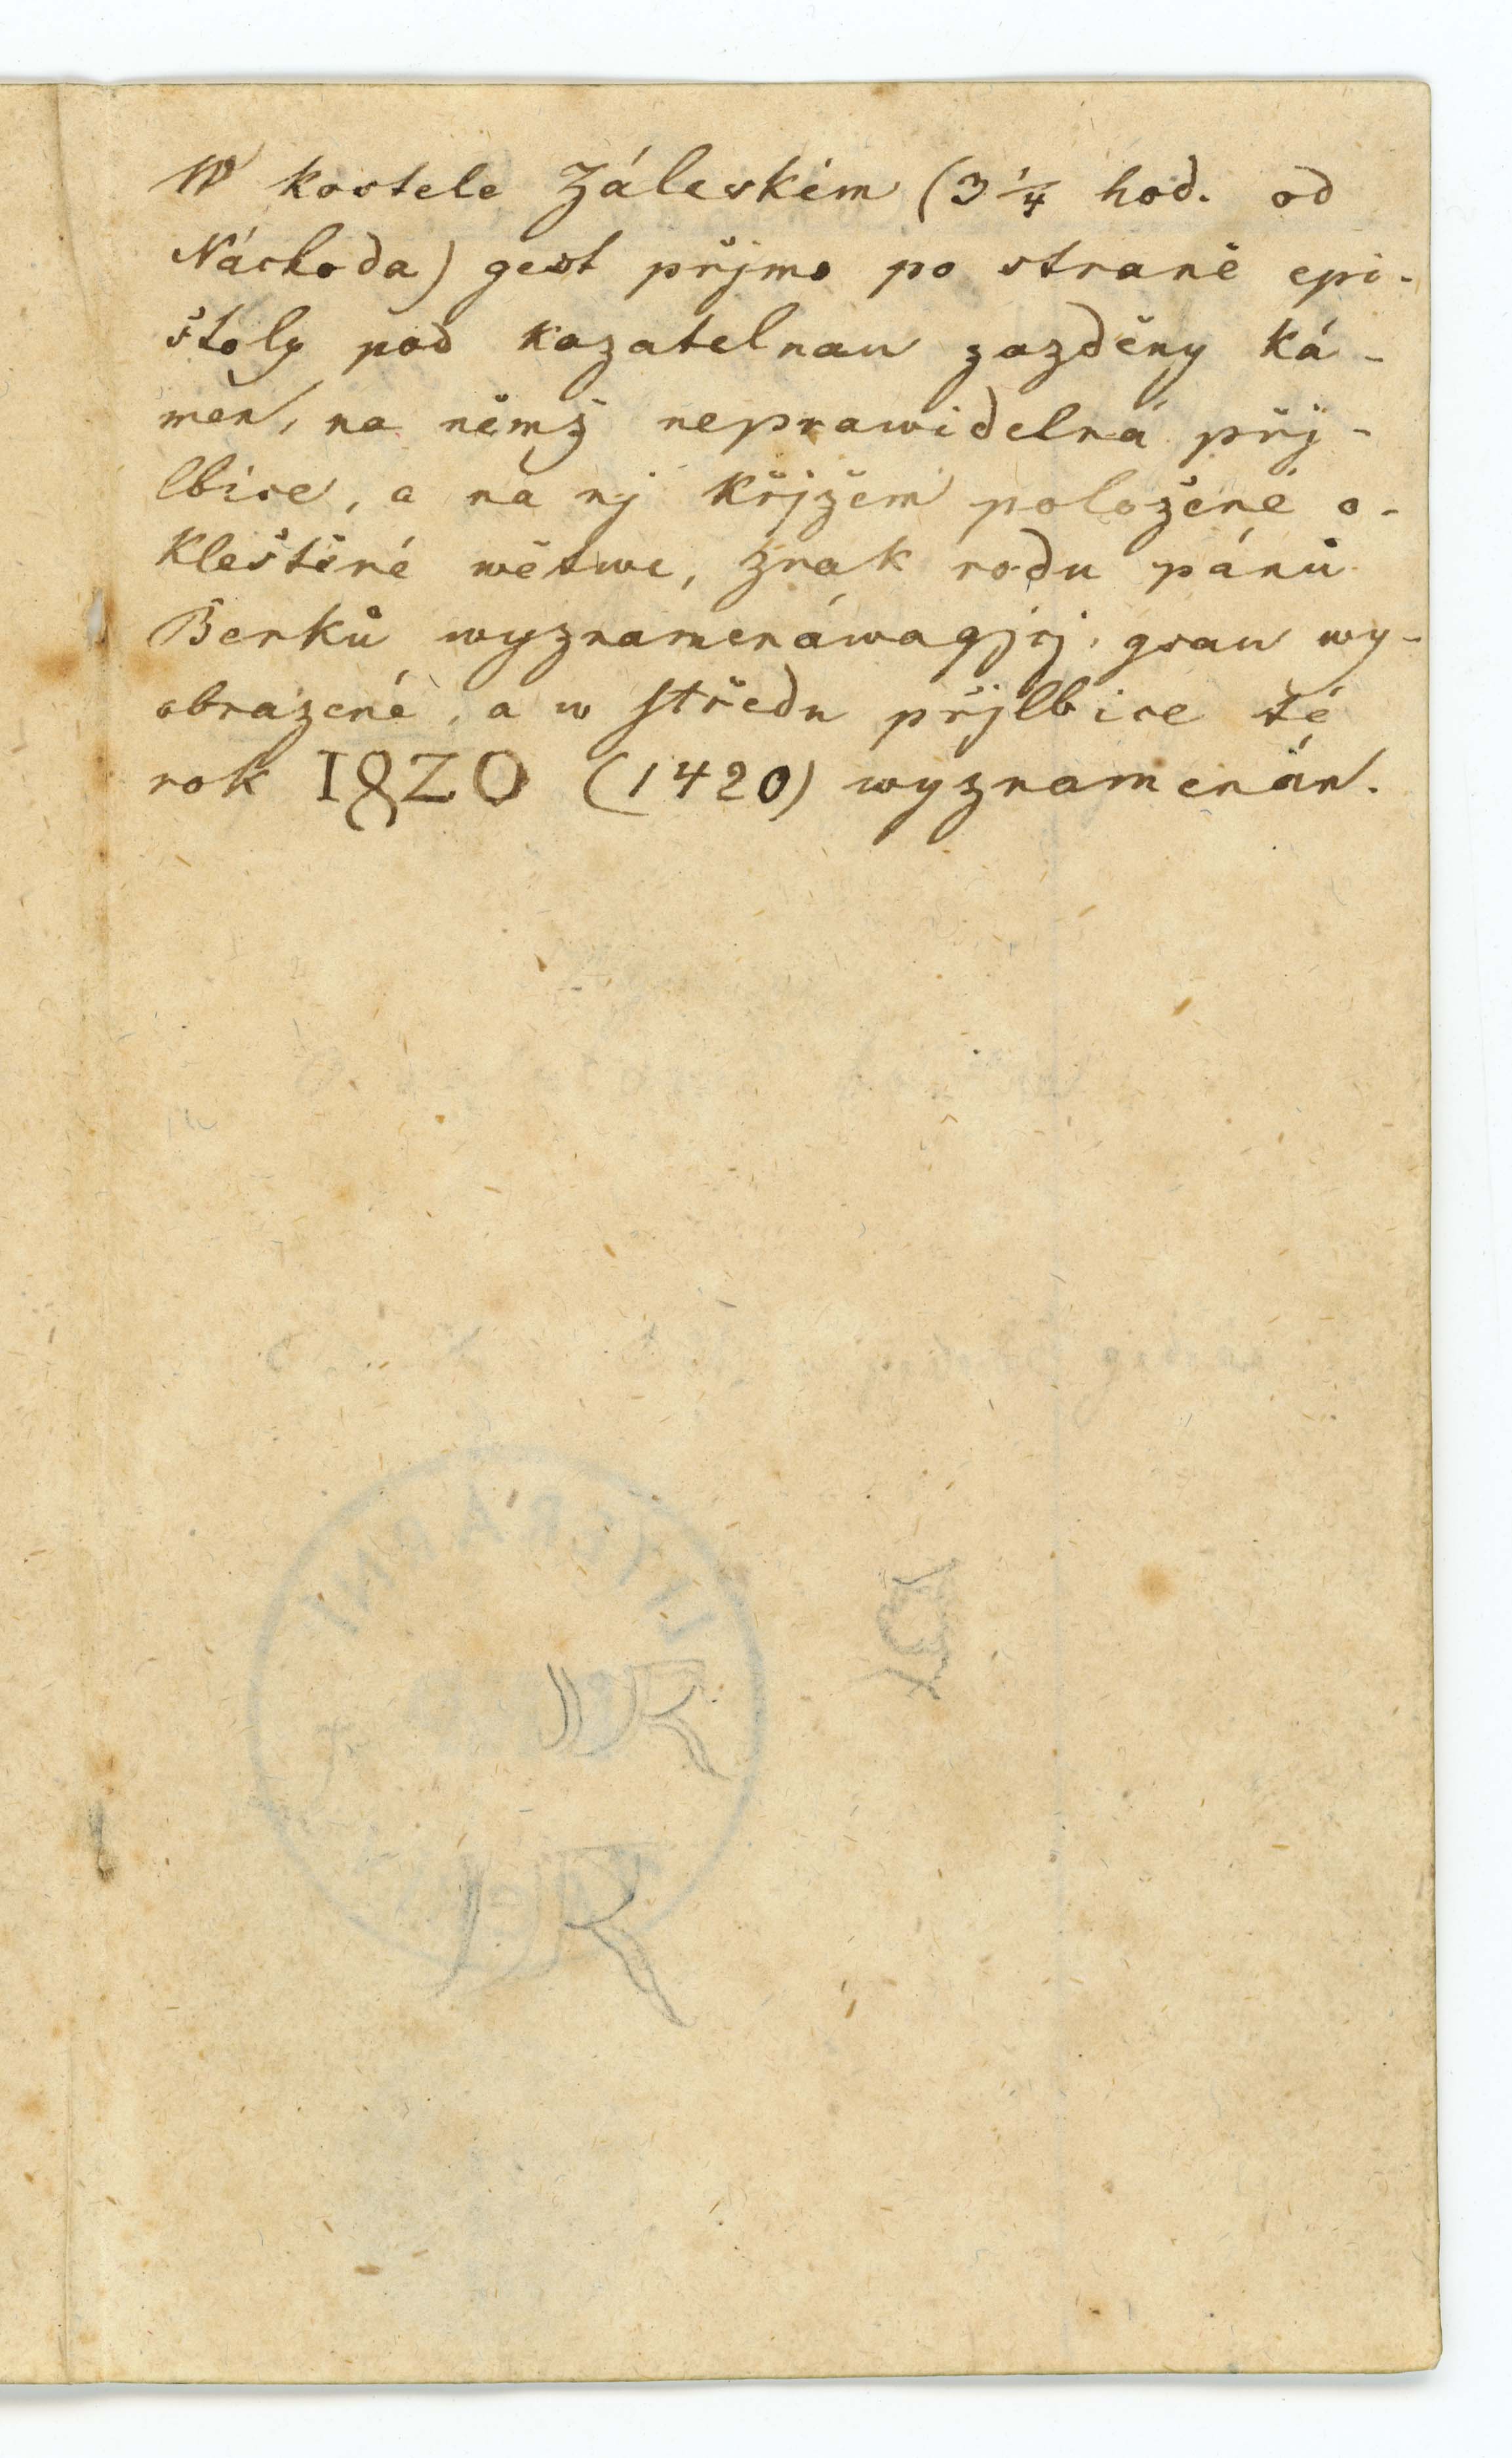 W kostele Záleském (3 1/4 hod. od
Náchoda) gest přjmo po straně epi-
štoly pod kazatelnau zazděny ká-
men, na němž neprawidelná přj-
lbice, a na nj křjžem položené o-
kleštěné wětwe, znak rodu pánů
Berků wyznamenáwagjcj, gsau wy-
obrazené, a w středu přjlbice té
rok 18Z0 (1420) wyznamenán.
LITERÁRNÍ